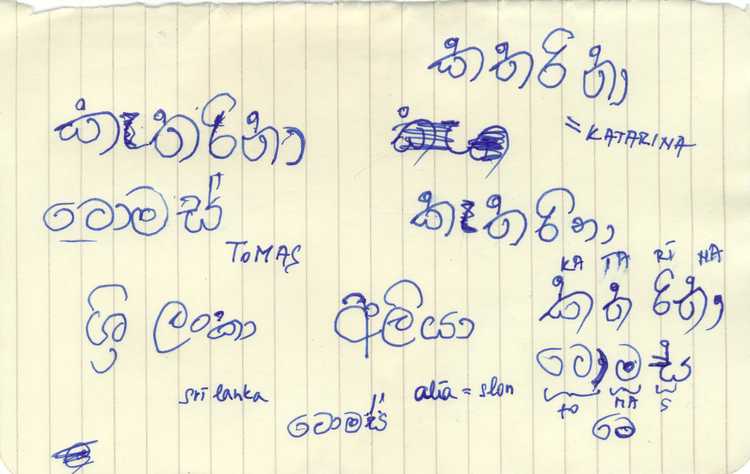 කතරිනා
= KATARINA
කැතරිනා
ටොමස්
TOMAS
කැතරිනා
KA TA RI NA
කතරිනා
ශ්‍රී ලංකා
අලියා
ටොමස්
sri lanka
alia = slon
to MA S
ටොමස්
ටෙ